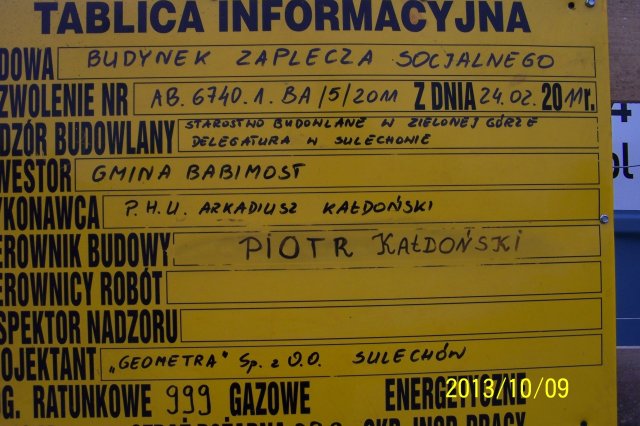 TABLICA INFORMACYJNA
DOWA BUDYNEK ZAPLECZA SOCJALNEGO
ZWOLENIE NR AB.6740.1.BA/5/2011 Z DNIA 24.02.2011r.
DZÓR BUDOWLANY STAROSTWO BUDOWLANE W ZIELONEJ GÓRZE
DELEGATURA W SULECHOWIE
WESTOR GMINA BABIMOST
YKONAWCA P.H.U. ARKADIUSZ KAŁDOŃSKI
EROWNIK BUDOWY PIOTR KAŁDOŃSKI
EROWNICY ROBÓT
SPEKTOR NADZORU
OJEKTANT „GEOMETRA" Sp. z O.O. SULECHÓW
G. RATUNKOWE 999 GAZOWE ENERGETYCZNE
2013/10/09